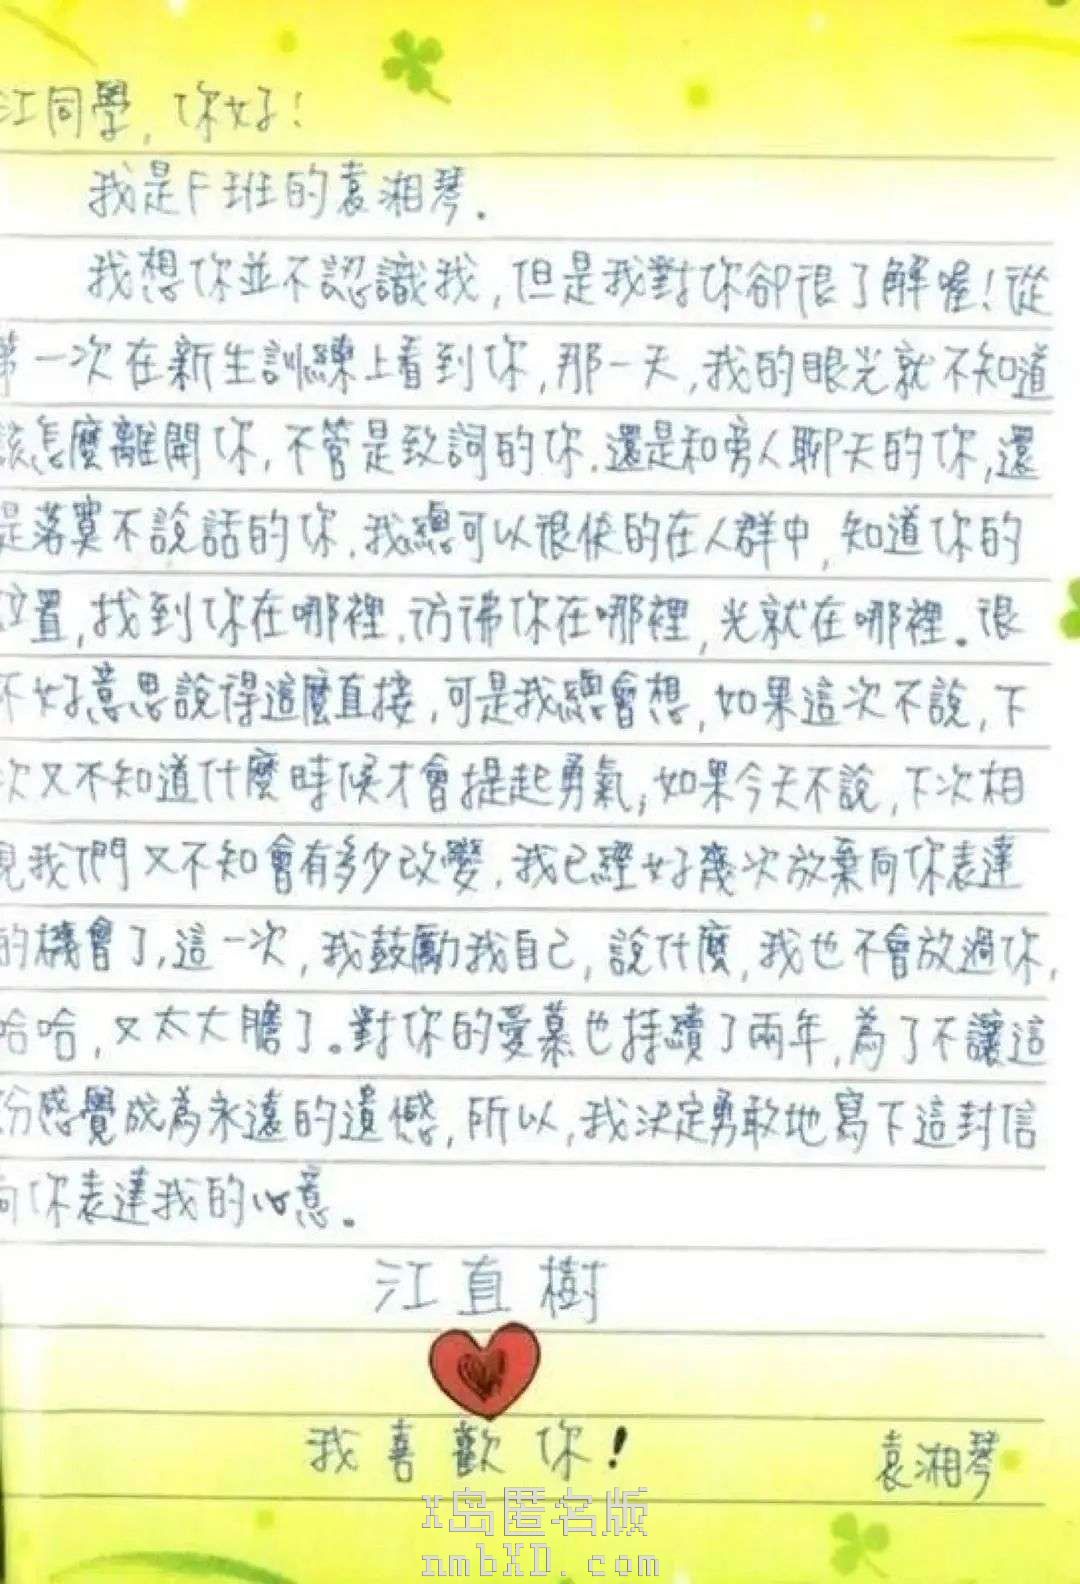 江同學，你好！
我是F班的袁湘琴．
我想你並不認識我，但是我對你卻很了解喔！從
第一次在新生訓練上看到你，那一天，我的眼光就不知道
該怎麼離開你，不管是致詞的你．還是和旁人聊天的你，還
是落寞不說話的你．我總可以很快的在人群中，知道你的
位置，找到你在哪裡．彷彿你在哪裡，光就在哪裡。很
不好意思說得這麼直接，可是我總會想，如果這次不說，下
次又不知道什麼時候才會提起勇氣，如果今天不說，下次相
見我們又不知會有多少改變．我已經好幾次放棄向你表達
的機會了，這一次，我鼓勵我自己，說什麼，我也不會放過你，
哈哈，又太大膽了。對你的愛慕也持續了兩年，為了不讓這
份感覺成為永遠的遺憾，所以，我決定勇敢地寫下這封信
向你表達我的心意。
江直樹
我喜歡你！
袁湘琴
X岛匿名版
nmbXD.com